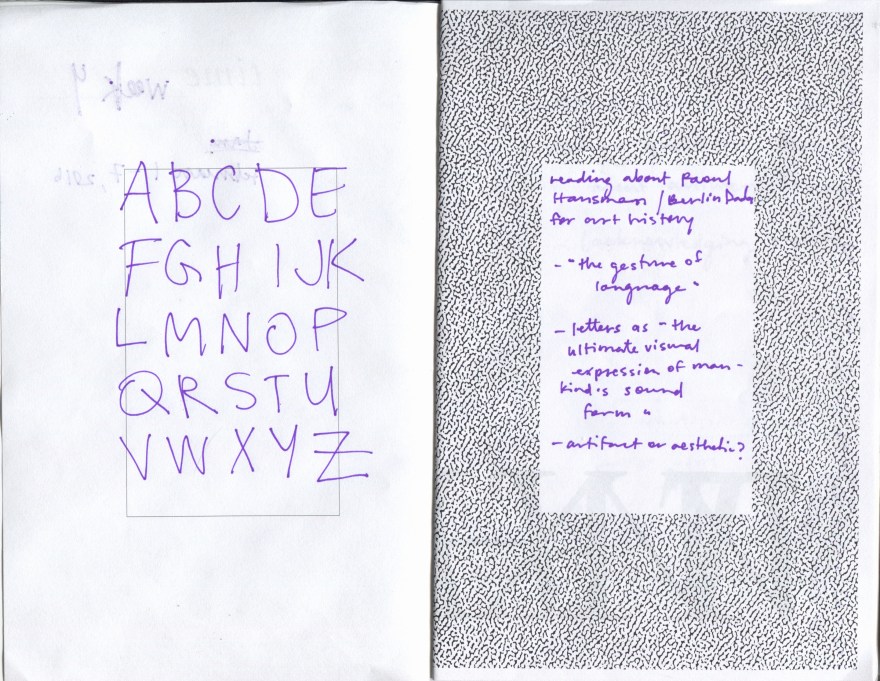 week 4
A B C D E
F G H I J K
L M N O P
Q R S T U
V W X Y Z
reading about Raoul
Hausman / Berlin Dada
for art history
- "the gesture of
language"
- letters as "the
ultimate visual
expression of man-
kind's sound
form"
- artifact or aesthetic?